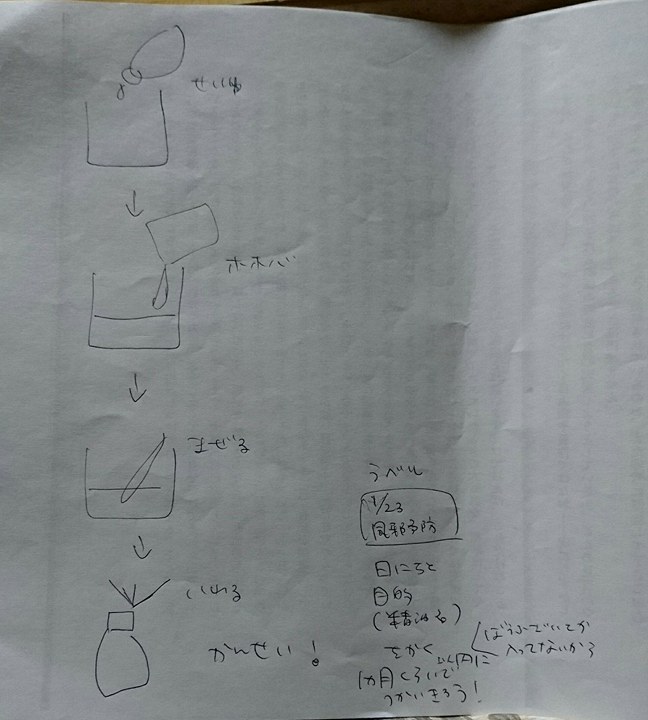 せいゆ
ホホバ
まぜる
いれる
かんせい！
ラベル
1/23
風邪予防
日にちと
目的
(精油名)
をかく
1ヵ月くらいで
以内に
つかいきろう！
ぼうふざいとか
入ってないから